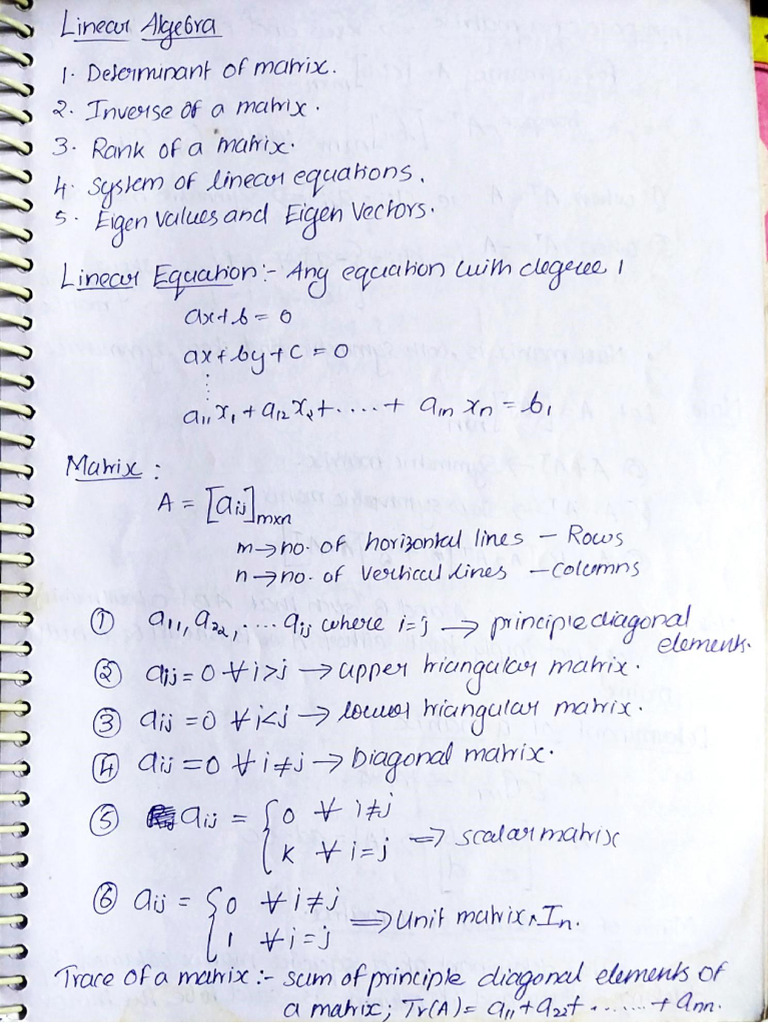 Linear Algebra
1. Determinant of matrix.
2. Inverse of a matrix.
3. Rank of a matrix.
4. System of linear equations.
5. Eigen values and Eigen vectors.
Linear Equation:- Any equation with degree 1
ax+b = 0
ax+by+c = 0
⋮
a₁₁x₁ + a₁₂x₂ + ..... + a₁ₙ xₙ = b₁
Matrix :
A = [aij]mxn
m → no. of horizontal lines – Rows
n → no. of vertical lines – columns
① a₁₁, a₂₂, .... aij where i=j → principle diagonal
elements.
② aij = 0 ∀ i>j → upper triangular matrix.
③ aij = 0 ∀ i<j → lower triangular matrix.
④ aij = 0 ∀ i≠j → Diagonal matrix.
⑤ aij = { 0 ∀ i≠j
k ∀ i=j ⇒ scalar matrix
⑥ aij = { 0 ∀ i≠j
1 ∀ i=j ⇒ Unit matrix, In.
Trace of a matrix :- sum of principle diagonal elements of
a matrix; Tr(A) = a₁₁ + a₂₂ + ....... + ann.